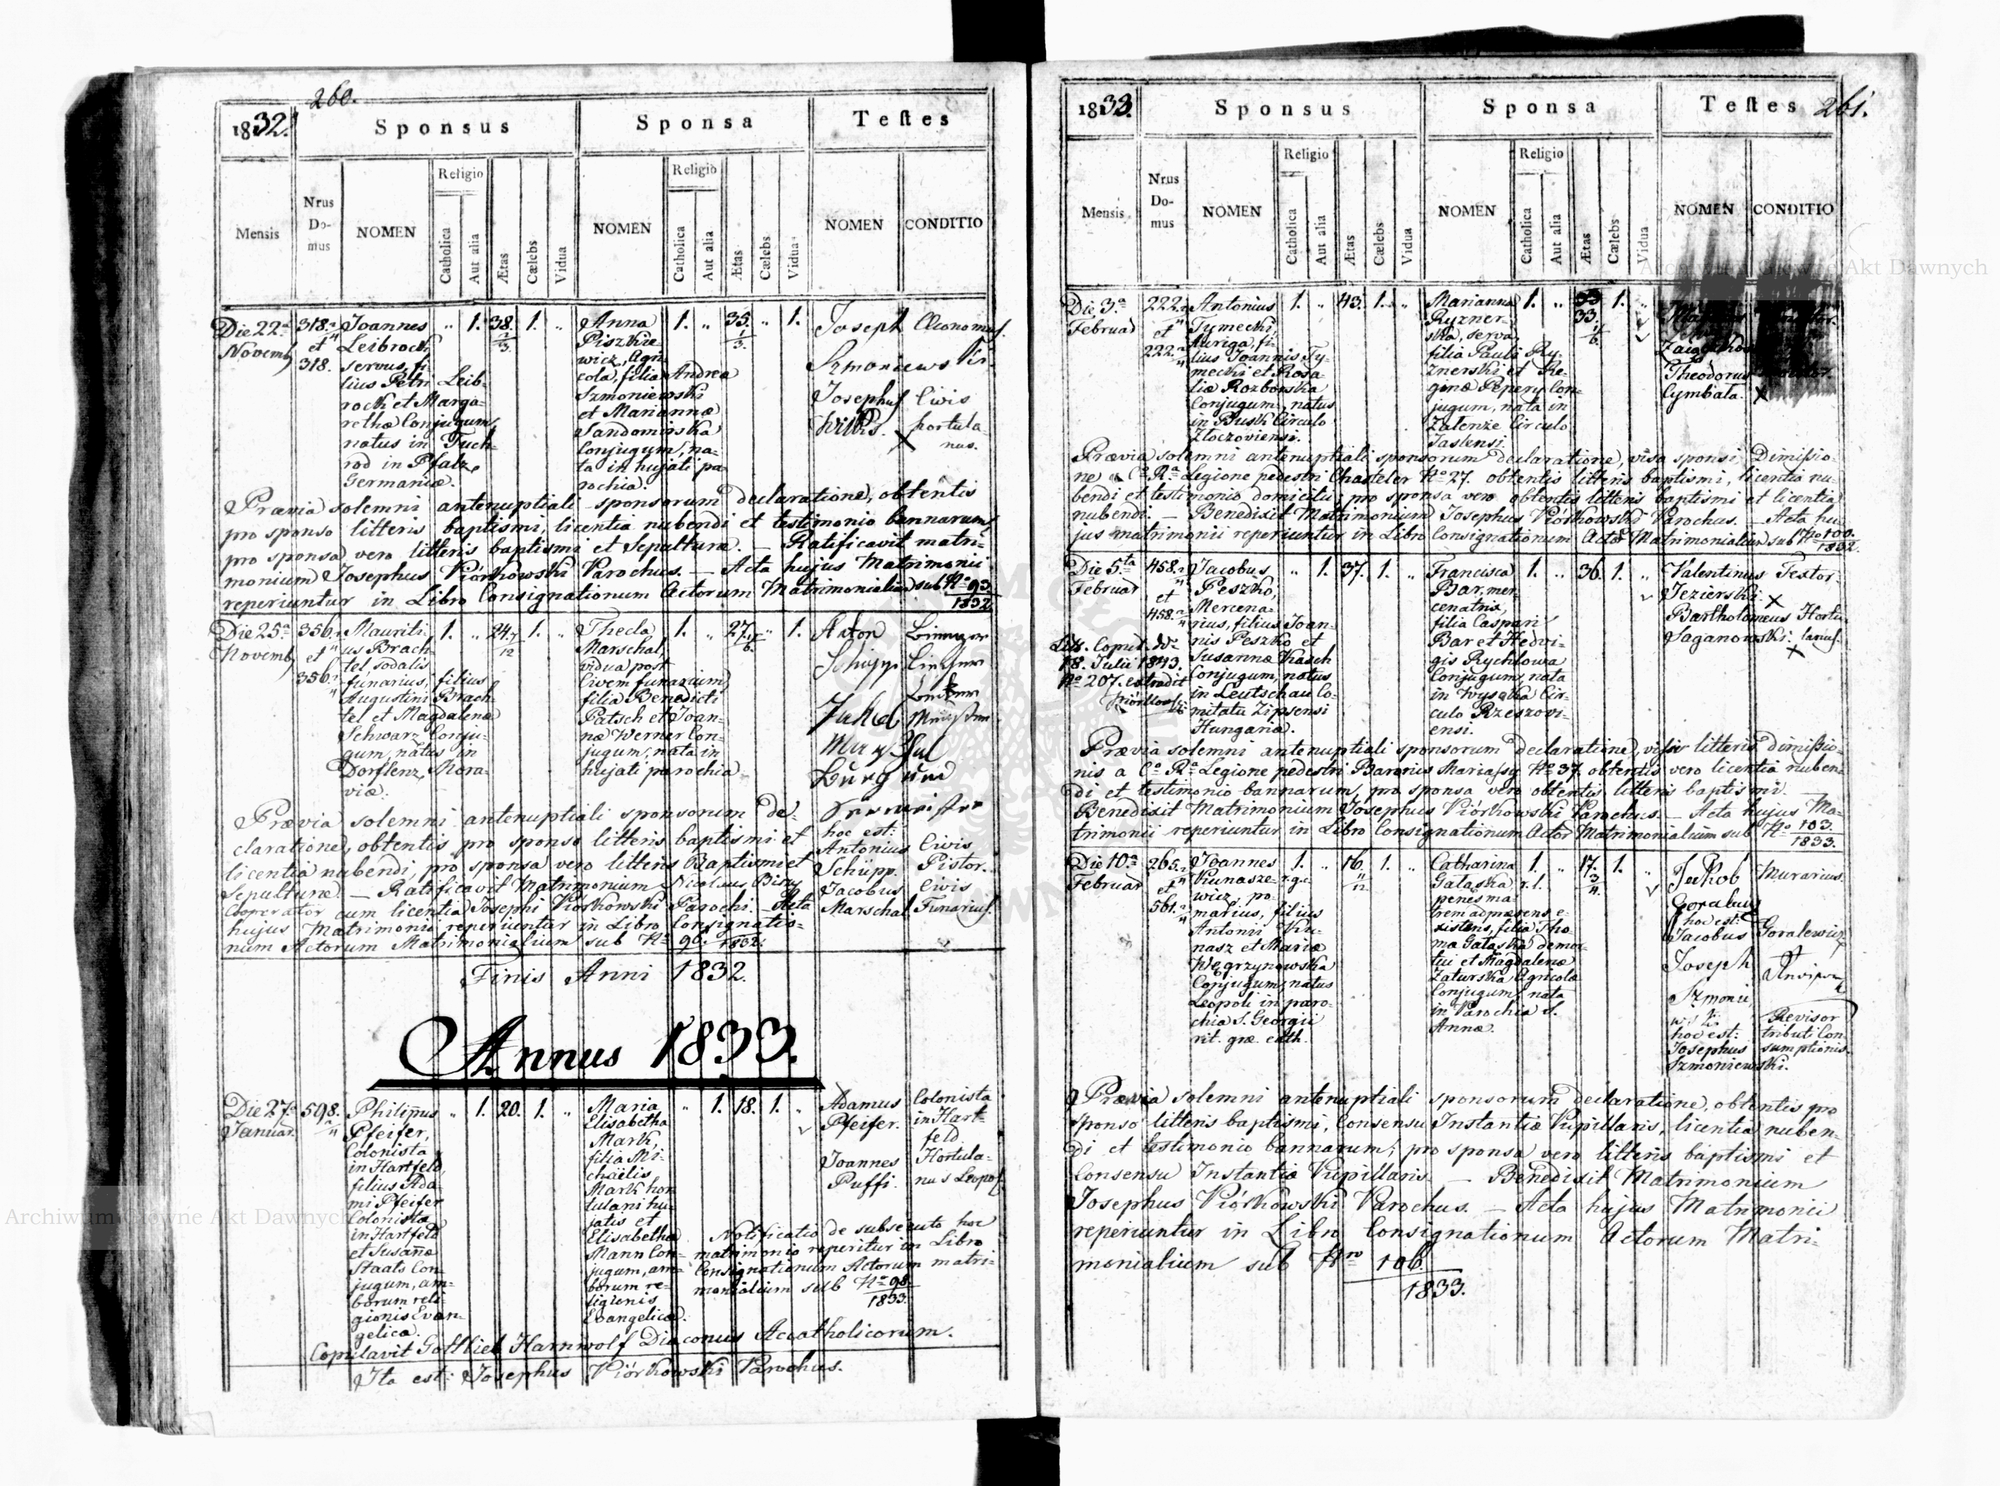 260.
1832.
Sponsus
Sponsa
Testes
Mensis
Nrus Domus
NOMEN
Religio
Catholica
Aut alia
Ætas
Cælebs
Vidua
NOMEN
Religio
Catholica
Aut alia
Ætas
Cælebs
Vidua
NOMEN
CONDITIO
Die 22a
Novemb
318.
et
318.
Joannes
Leibrock
servus, fi-
lius Petri Leib-
rock et Marga-
rethæ Conjugum,
natus in Fuch-
rod in Pfalz,
Germaniæ.
" 1. 38. 1. "
Anna
Piszkie-
wicz, Agri-
cola, filia Andreæ
Szmoniewski
et Mariannæ
Sandomirska
Conjugum, na-
ta in hujati pa-
rochia.
1. " 35. " 1.
Joseph Œconomus
Szmoniewski
Josephus Civis
Wilks. hortula-
nus.
Prævia solemni antenuptiali sponsorum declaratione, obtentis
pro sponso litteris baptismi, licentia nubendi et testimonio bannarum,
pro sponsa vero litteris baptismi et sepulturæ. — Ratificavit matri-
monium Josephus Piórkowski Parochus. — Acta hujus Matrimonii
reperiuntur in Libro Consignationum Actorum Matrimonialium sub No 93.
1832
Die 25a
Novemb
356.
et
356.
Mauriti-
us Brach-
tel sodalis
funarius, filius
Augustini Brach-
tel et Magdalenæ
Schwarz Conju-
gum, natus in
Dorflenz, Mora-
viæ.
1. " 24. 1. "
Thecla
Marschal,
vidua post
Civem funarium,
filia Benedicti
Patsch et Joan-
næ Werner Con-
jugum, nata in
hujati parochia.
1. " 27. " 1.
Anton
Schüpp
Jakob
Marschal
hoc est:
Antonius Civis
Schüpp. Pistor.
Jacobus Civis
Marschal. Funarius.
Prævia solemni antenuptiali sponsorum de-
claratione, obtentis pro sponso litteris baptismi et
licentia nubendi, pro sponsa vero litteris Baptismi et
Sepulturæ. — Ratificavit Matrimonium Nicolaus
Cooperator cum licentia Josephi Piórkowski Parochi. — Acta
hujus Matrimonii reperiuntur in Libro Consignatio-
num Actorum Matrimonialium sub No 96. 1832.
Finis Anni 1832.
Annus 1833.
Die 27a
Januar.
598.
Philippus
Pfeifer,
Colonista
in Hartfeld,
filius Ada-
mi Pfeifer
Colonista
in Hartfeld
et Susanæ
Staats Con-
jugum, am-
borum reli-
gionis Evan-
gelicæ.
" 1. 20. 1. "
Maria
Elisabetha
Mark,
filia Mi-
chaëlis
Mark hor-
tulani hu-
jatis et
Elisabethæ
Mann Con-
jugum, am-
borum re-
ligionis
Evangelicæ.
" 1. 18. 1. "
Adamus Colonista
Pfeifer. in Hart-
feld.
Joannes Hortula-
Puffi. nus Leopol.
Notificatio de subsecuto hoc
matrimonio reperitur in Libro
Consignationum Actorum matri-
monialium sub No 98.
1833.
Copulavit Gottlieb Harnwolf Diaconus Accatholicorum.
Ita est: Josephus Piórkowski Parochus.
1833.
Sponsus
Sponsa
Testes
261.
Mensis
Nrus Domus
NOMEN
Religio
Catholica
Aut alia
Ætas
Cælebs
Vidua
NOMEN
Religio
Catholica
Aut alia
Ætas
Cælebs
Vidua
NOMEN
CONDITIO
Die 3a
Februar
222.
et
222.
Antonius
Tymecki,
Auriga, fi-
lius Joannis Ty-
mecki et Rosa-
liæ Rozborska
Conjugum, natus
in Busk Circulo
Zloczoviensi.
1. " 43. 1. "
Marianna
Ryzner-
ska, serva,
filia Pauli Ry-
znerski et Re-
ginæ Pepery Con-
jugum, nata in
Zalenze Circulo
Jaslensi.
1. " 33. 1.
Theodorus
Cymbala.
Prævia solemni antenuptiali sponsorum declaratione, visa sponsi Dimissio-
ne a C. R. Legione pedestri Chasteler No 27. obtentis litteris baptismi, licentia nu-
bendi et testimonio domicilii; pro sponsa vero obtentis litteris baptismi et licentia
nubendi. — Benedixit Matrimonium Josephus Piórkowski Parochus. — Acta hu-
jus matrimonii reperiuntur in Libro Consignationum Actor Matrimonialium sub No 100.
1832.
Die 5ta
Februar
458.
et
458.
Jacobus
Peszko,
Mercena-
rius, filius Joan-
nis Peszko et
Susannæ Kasch
Conjugum, natus
in Leutschau Co-
mitatu Zipsensi
Hungariæ.
" 1. 37. 1. "
Francisca
Bar, mer-
cenatrix,
filia Caspari
Bar et Hedvi-
gis Rychlowa
Conjugum, nata
in Wysoka Cir-
culo Rzeszovi-
ensi.
1. " 36. 1. "
Valentinus Textor.
Jezierski.
Bartholomeus Hortu-
Paganowski. lanus.
Litt. Copul. do
18. Julii 1843.
No 207. extradit
Prævia solemni antenuptiali sponsorum declaratione, visis litteris dimissio-
nis a C. R. Legione pedestri No 37. obtentis vero licentia nuben-
di et testimonio bannarum, pro sponsa vero obtentis litteris baptismi. —
Benedixit Matrimonium Josephus Piórkowski Parochus. — Acta hujus Ma-
trimonii reperiuntur in Libro Consignationum Actor Matrimonialium sub No 103.
1833.
Die 10a
Februar
265.
et
561.
Joannes
Kunasze-
wicz, po-
marius, filius
Antonii Ku-
nasz et Mariæ
Węgrzynowska
Conjugum, natus
Leopoli in paro-
chia S. Georgii
rit. græ. cath.
1. " 16. 1. "
Catharina
Gałaska r. l.
penes ma-
trem adpærens e-
xistens, filia Tho-
mæ Gałaska demor-
tui et Magdalenæ
Zaturska Agricola
Conjugum, nata
in Parochia S.
Annæ.
1. " 17. 1. "
Jakob Murarius.
hoc est:
Jacobus Goralewicz
Joseph
Szmoniewski
hoc est: Revisor
Josephus tributi Con-
Szmoniewski. sumptionis.
Prævia solemni antenuptiali sponsorum declaratione, obtentis pro
sponso litteris baptismi, Consensu Instantiæ Pupillaris, licentia nuben-
di et testimonio bannarum; pro sponsa vero litteris baptismi et
Consensu Instantiæ Pupillaris. — Benedixit Matrimonium
Josephus Piórkowski Parochus. — Acta hujus Matrimonii
reperiuntur in Libro Consignationum Actorum Matri-
monialium sub Nro 106.
1833.
Archiwum Główne Akt Dawnych
Archiwum Główne Akt Dawnych